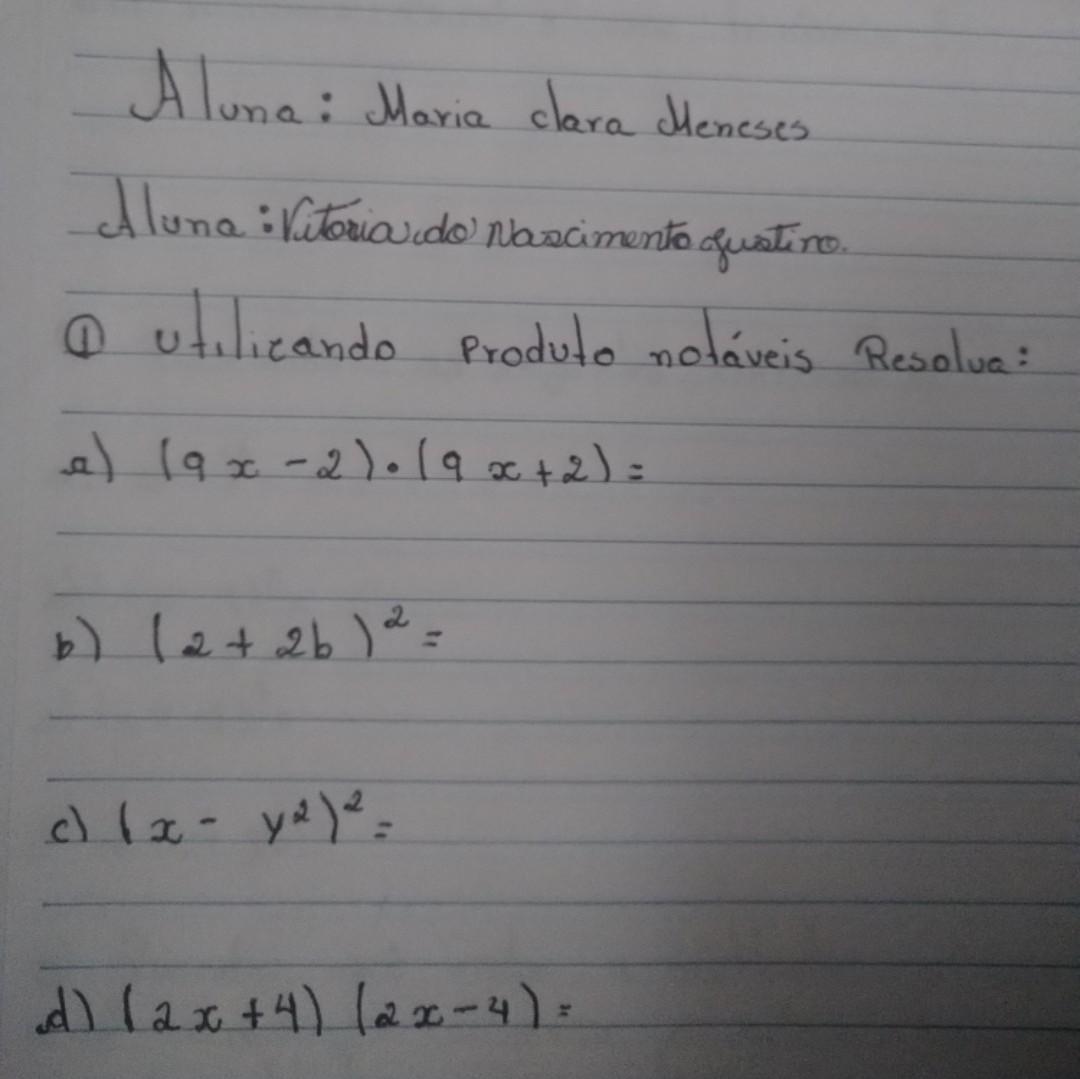 Aluna: Maria clara Meneses
Aluna: Vitoria do Nascimento Justino.
① utilizando Produto notáveis Resolva:
a) (9x - 2) . (9x + 2) =
b) (2 + 2b)² =
c) (x - y²)² =
d) (2x + 4) (2x - 4) =